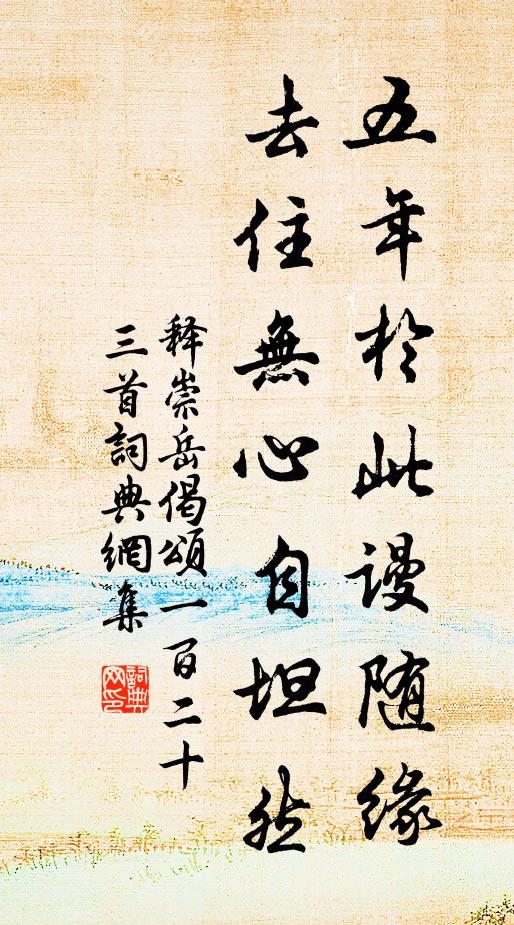 五年於此謾随緣
去住無心自坦然
释崇岳偈頌一百二十
三首詞典網集
詞典
网印